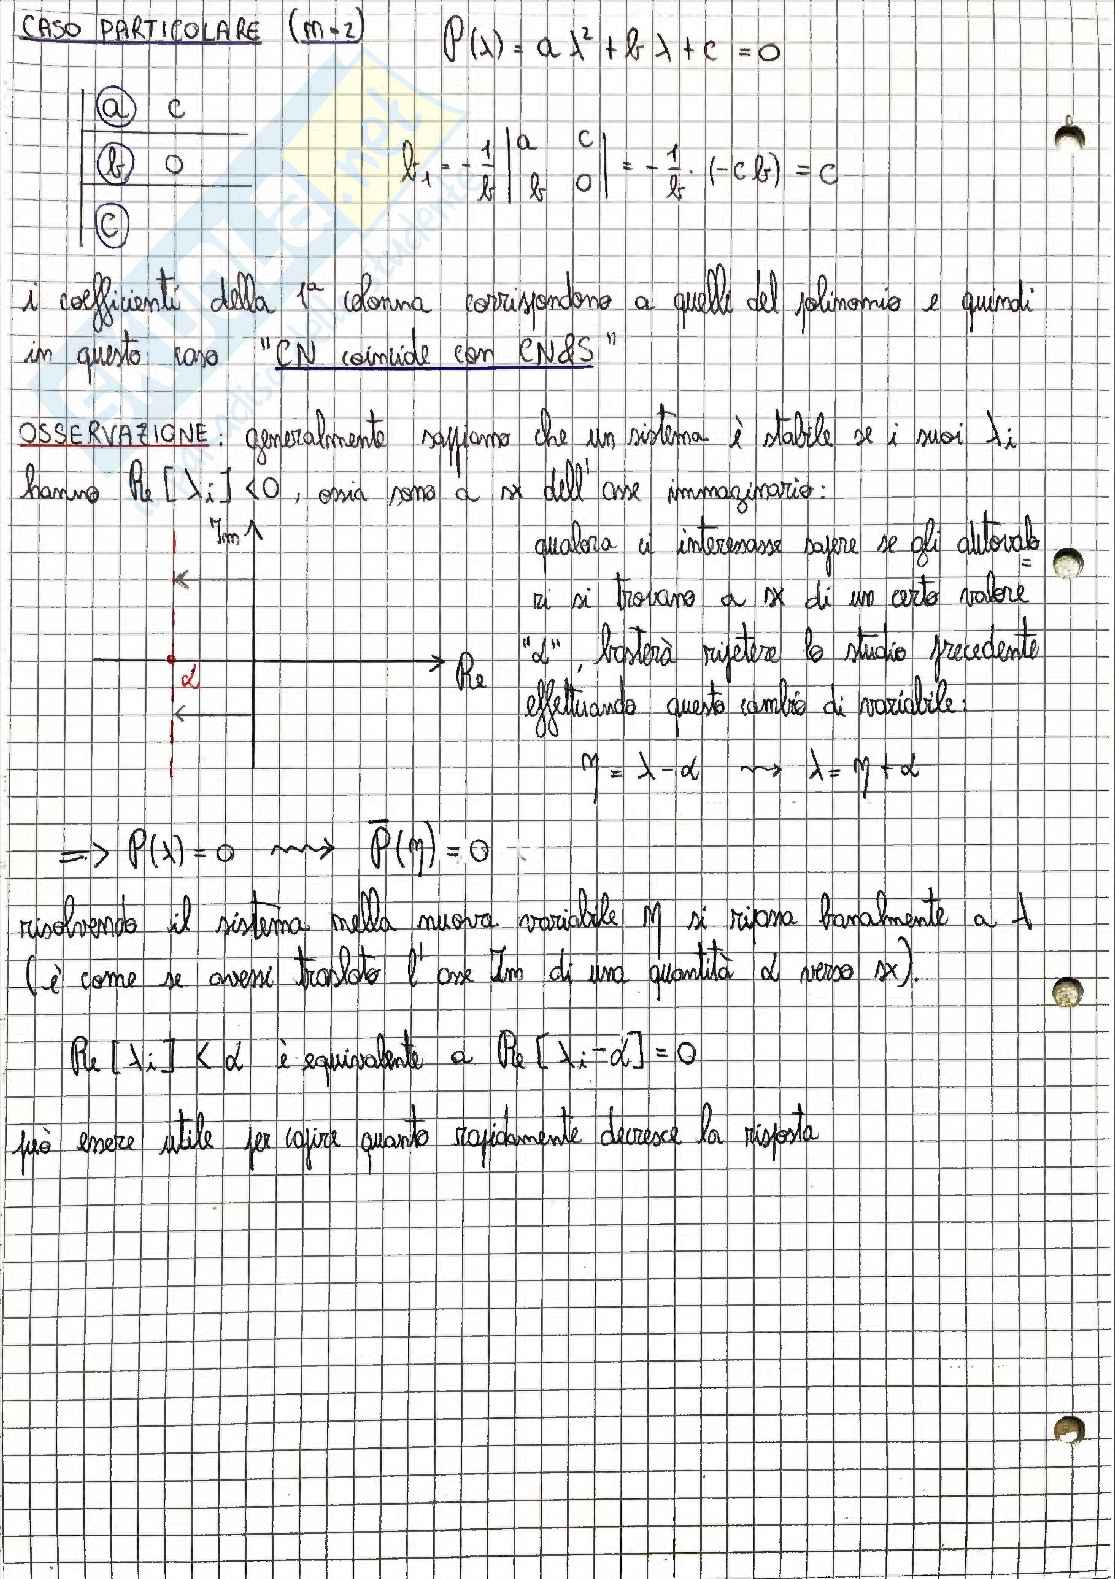 CASO PARTICOLARE (m=2) P(λ) = a λ² + b λ + c = 0
a c
b 0
c
b₁ = - 1/b | a c | = - 1/b · (-c b) = c
| b 0 |
i coefficienti della 1ª colonna corrispondono a quelli del polinomio e quindi
in questo caso "CN coincide con CN&S"
OSSERVAZIONE: generalmente sappiamo che un sistema è stabile se i suoi λi
hanno Re[λi] < 0, ossia sono a sx dell'asse immaginario:
Im
Re
α
qualora ci interessasse sapere se gli autovalo=
ri si trovano a sx di un certo valore
"α", basterà ripetere lo studio precedente
effettuando questo cambio di variabile:
η = λ - α ⇝ λ = η + α
=> P(λ) = 0 ⇝ P̅(η) = 0
risolvendo il sistema nella nuova variabile η si ripassa banalmente a λ
(è come se avessi traslato l'asse Im di una quantità α verso sx).
Re[λi] < α è equivalente a Re[λi - α] = 0
può essere utile per capire quanto rapidamente decresce la risposta